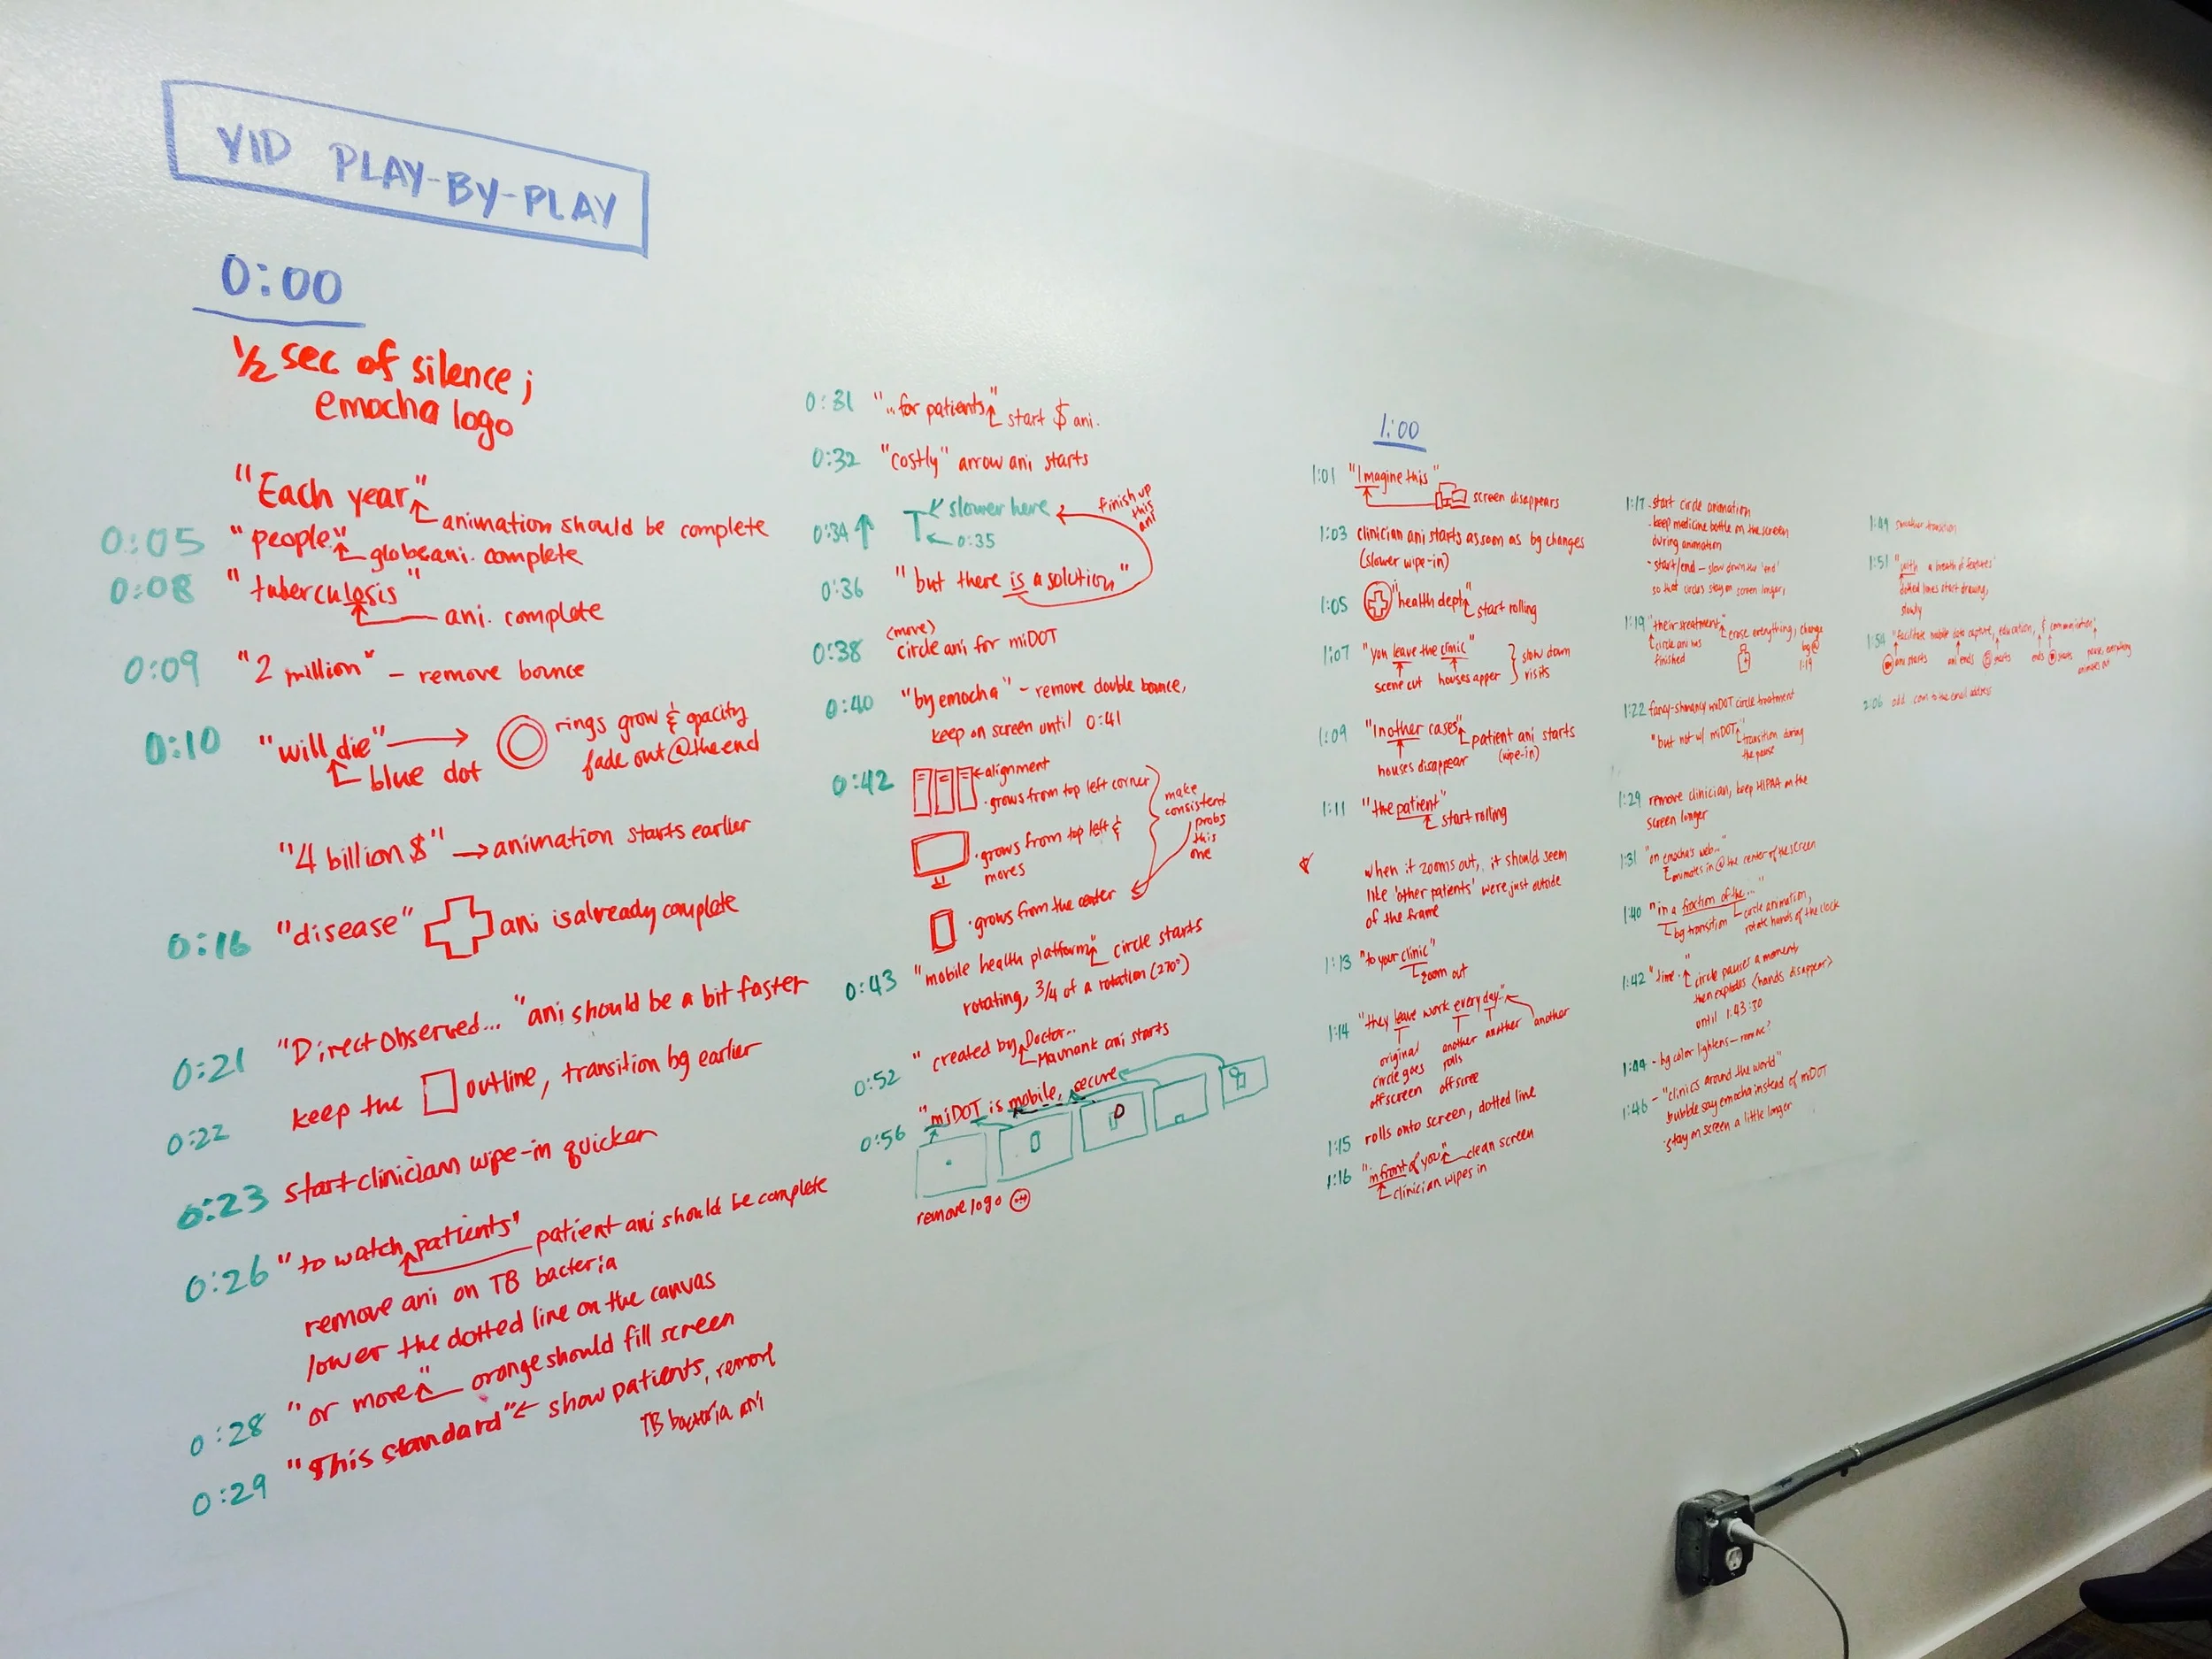 VID PLAY-BY-PLAY
0:00
1/2 sec of silence;
emocha logo
"Each year"
animation should be complete
0:05 "people"
globe ani. complete
0:08 "tuberculosis"
ani. complete
0:09 "2 million" - remove bounce
0:10 "will die" → rings grow & opacity
fade out @ the end
blue dot
"4 billion $" → animation starts earlier
0:16 "disease" ani is already complete
0:21 "Direct Observed..." ani should be a bit faster
0:22 keep the outline, transition bg earlier
0:23 start clinician wipe-in quicker
0:26 "to watch patients"
patient ani should be complete
remove ani on TB bacteria
lower the dotted line on the canvas
0:28 "or more" orange should fill screen
0:29 "This standard" ← show patients, remove
TB bacteria ani
0:31 "...for patients" start $ ani.
0:32 "costly" arrow ani starts
0:34 ↑ slower here
0:35
finish up
this
ani
0:36 "but there is a solution"
(move)
0:38 circle ani for miDOT
0:40 "by emocha" - remove double bounce,
keep on screen until 0:41
0:42 alignment
· grows from top left corner
· grows from top left &
moves
· grows from the center
make
consistent
probs
this
one
0:43 "mobile health platform" circle starts
rotating, 3/4 of a rotation (270°)
0:52 "created by Doctor..
ani starts
0:56 "miDOT is mobile, secure
remove logo
1:00
1:01 "Imagine this"
screen disappears
1:03 clinician ani starts as soon as bg changes
(slower wipe-in)
1:05 "health dept" start rolling
1:07 "you leave the clinic"
scene cut houses apper
slow down
visits
1:09 "In other cases" patient ani starts
(wipe-in)
houses disappear
1:11 "the patient"
start rolling
when it zooms out, it should seem
like 'other patients' were just outside
of the frame
1:13 "to your clinic"
zoom out
1:14 "they leave work every day"
original another another another
circle goes rolls
offscreen offscree
1:15 rolls onto screen, dotted line
1:16 "in front of you" clean screen
clinician wipes in
1:17 · start circle animation
· keep medicine bottle on the screen
during animation
· start/end - slow down the 'end'
so that circles stay on screen longer,
1:19 "their treatment" erase everything, change
bg @
1:19
circle ani has
finished
1:22 fancy-shmancy miDOT circle treatment
"but not w/ miDOT" transition during
the pause
1:29 remove clinician, keep HIPAA on the
screen longer
1:31 "on emocha's web..."
animates in @ the center of the screen
1:40 "in a fraction of the..."
bg transition circle animation,
rotate hands of the clock
1:42 "time." circle pauses a moment,
then explodes (hands disappear)
until 1:43:30
1:44 - bg color lightens - remove?
1:46 - "clinics around the world"
bubble say emocha instead of miDOT
· stay on screen a little longer
1:49 smoother transition
1:51 "with a breath of features"
dotted lines start drawing,
slowly
1:54 "facilitate mobile data capture, education, & communication"
ani starts ani ends starts ends starts
2:06 add .com to the email address